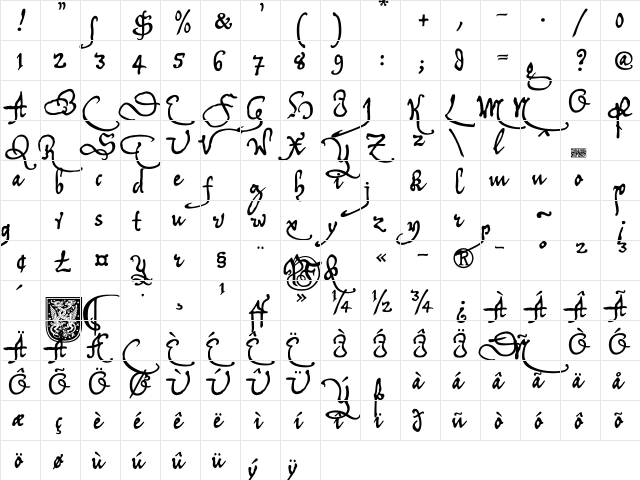 ! " ſ $ % & ' ( ) * + , – · / 0
1 2 3 4 5 6 7 8 9 : ; = ? @
A B C D E F G H I K L M N O P
Q R S T U V W X Y Z z \ l ^
a b c d e f g h i j k l m n o p
q r s t u v w x y z r p ~ ¡
¢ £ ¤ Y r § ¨ « – ® – ° 2 3
´ · ¸ 1 » ¼ ½ ¾ ¿ À Á Â Ã
Ä Å Æ Ç È É Ê Ë Ì Í Î Ï Ñ Ò Ó
Ô Õ Ö Ø Ù Ú Û Ü Ý à á â ã ä å
æ ç è é ê ë ì í î ï ñ ò ó ô õ
ö ø ù ú û ü ý ÿ